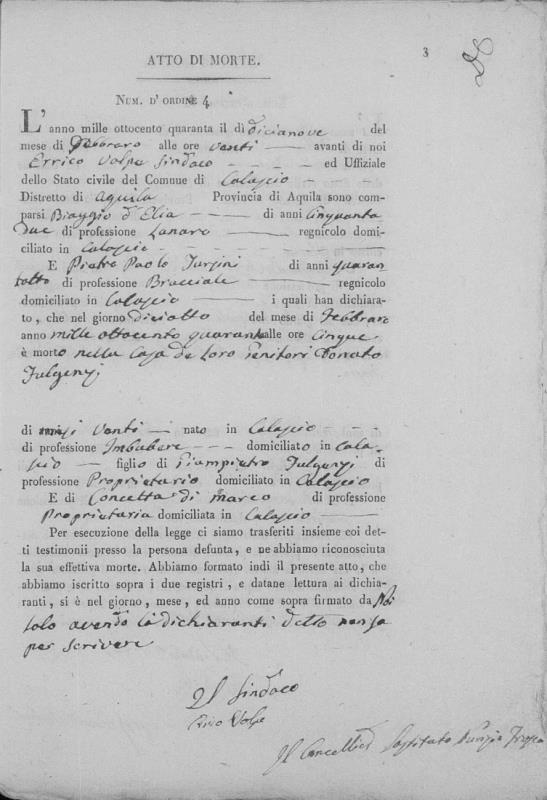 3
ATTO DI MORTE.
NUM. D' ORDINE 4
L' anno mille ottocento quaranta il dì dicianove del
mese di Febbraro alle ore venti avanti di noi
Errico Volpe Sindaco ed Uffiziale
dello Stato civile del Comune di Calascio
Distretto di Aquila Provincia di Aquila sono com-
parsi Biaggio d'Elia di anni Cinquanta
due di professione Lanaro regnicolo domi-
ciliato in Calascio
E Pietro Paolo di anni quaran
totto di professione Bracciale regnicolo
domiciliato in Calascio i quali han dichiara-
to, che nel giorno diciotto del mese di Febbraro
anno mille ottocento quaranta alle ore Cinque
è morto nella Casa de loro Genitori Donato
Fulgenzj
di mesi Venti nato in Calascio
di professione Imbubere domiciliato in Cala-
scio figlio di Giampietro Fulgenzj di
professione Proprietario domiciliato in Calascio
E di Concetta di Marco di professione
Proprietaria domiciliata in Calascio
Per esecuzione della legge ci siamo trasferiti insieme coi det-
ti testimonii presso la persona defunta, e ne abbiamo riconosciuta
la sua effettiva morte. Abbiamo formato indi il presente atto, che
abbiamo iscritto sopra i due registri, e datane lettura ai dichia-
ranti, si è nel giorno, mese, ed anno come sopra firmato da Noi
solo avendo li dichiaranti detto non sa
per scrivere
Il Sindaco
Volpe
Il Sostituto